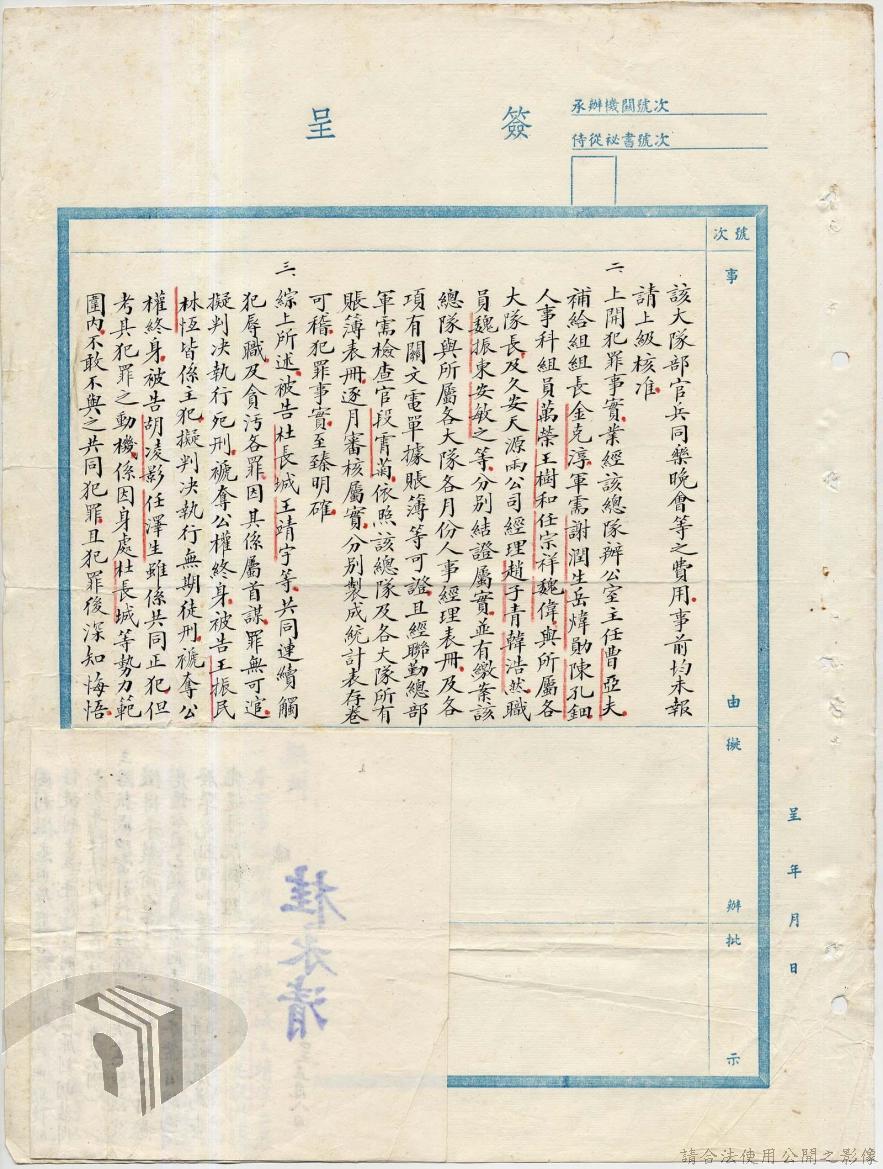 承辦機關號次
侍從祕書號次
簽呈
號次
事由
擬辦
批示
呈 年 月 日
該大隊部官兵同樂晚會等之費用事前均未報
請上級核准
二 上開犯罪事實業經該總隊辦公室主任曹亞夫
補給組組長金克淳軍需謝潤生岳煒勛陳孔鈿
人事科組員萬榮王樹和任宗祥魏偉與所屬各
大隊長及久安天源兩公司經理趙子青韓浩然職
員魏振東安敏之等分別結證屬實並有繳案該
總隊與所屬各大隊各月份人事經理表冊及各
項有關文電單據賬簿等可證且經聯勤總部
軍需檢查官段霄菊依照該總隊及各大隊所有
賬簿表冊逐月審核屬實分別製成統計表存卷
可稽犯罪事實至臻明確
三 綜上所述被告杜長城王靖宇等共同連續觸
犯辱職及貪污各罪因其係屬首謀罪無可逭
擬判決執行死刑褫奪公權終身被告王振民
林恆皆係主犯擬判決執行無期徒刑褫奪公
權終身被告胡凌影任澤生雖係共同正犯但
考其犯罪之動機係因身處杜長城等勢力範
圍內不敢不與之共同犯罪且犯罪後深知悔悟
桂永清
請合法使用公開之影像